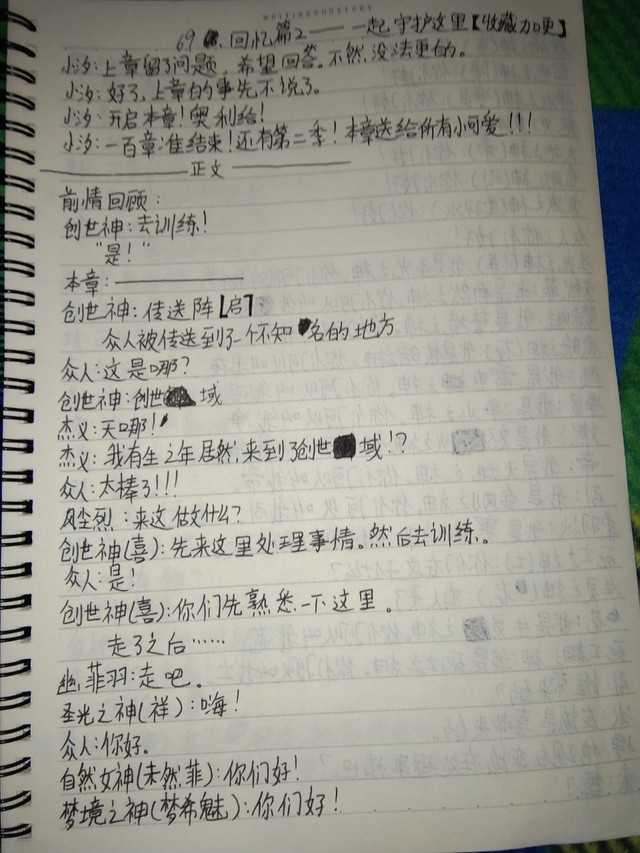 WRITINGOURSTORY
69 回忆篇2——一起守护这里【收藏加更】
小汐:上章留了问题,希望回答。不然,没法更的。
小汐:好了,上章的事先不说了。
小汐:开启本章!奥利给!
小汐:一百章准结束!还有第二季!本章送给所有小可爱!!!
正文
前情回顾:
创世神:去训练!
"是!"
本章:
创世神:传送阵【启】
众人被传送到了一个不知名的地方
众人:这是哪?
创世神:创世域
杰义:天哪!
杰义:我有生之年居然,来到了创世域!?
众人:太棒了!!!
风尘烈:来这做什么?
创世神(喜):先来这里处理事情。然后去训练.。
众人:是!
创世神(喜):你们先熟悉一下这里。
走了之后……
幽菲羽:走吧。
圣光之神(祥):嗨!
众人:你好。
自然女神(未然菲):你们好!
梦境之神(梦希魅):你们好!